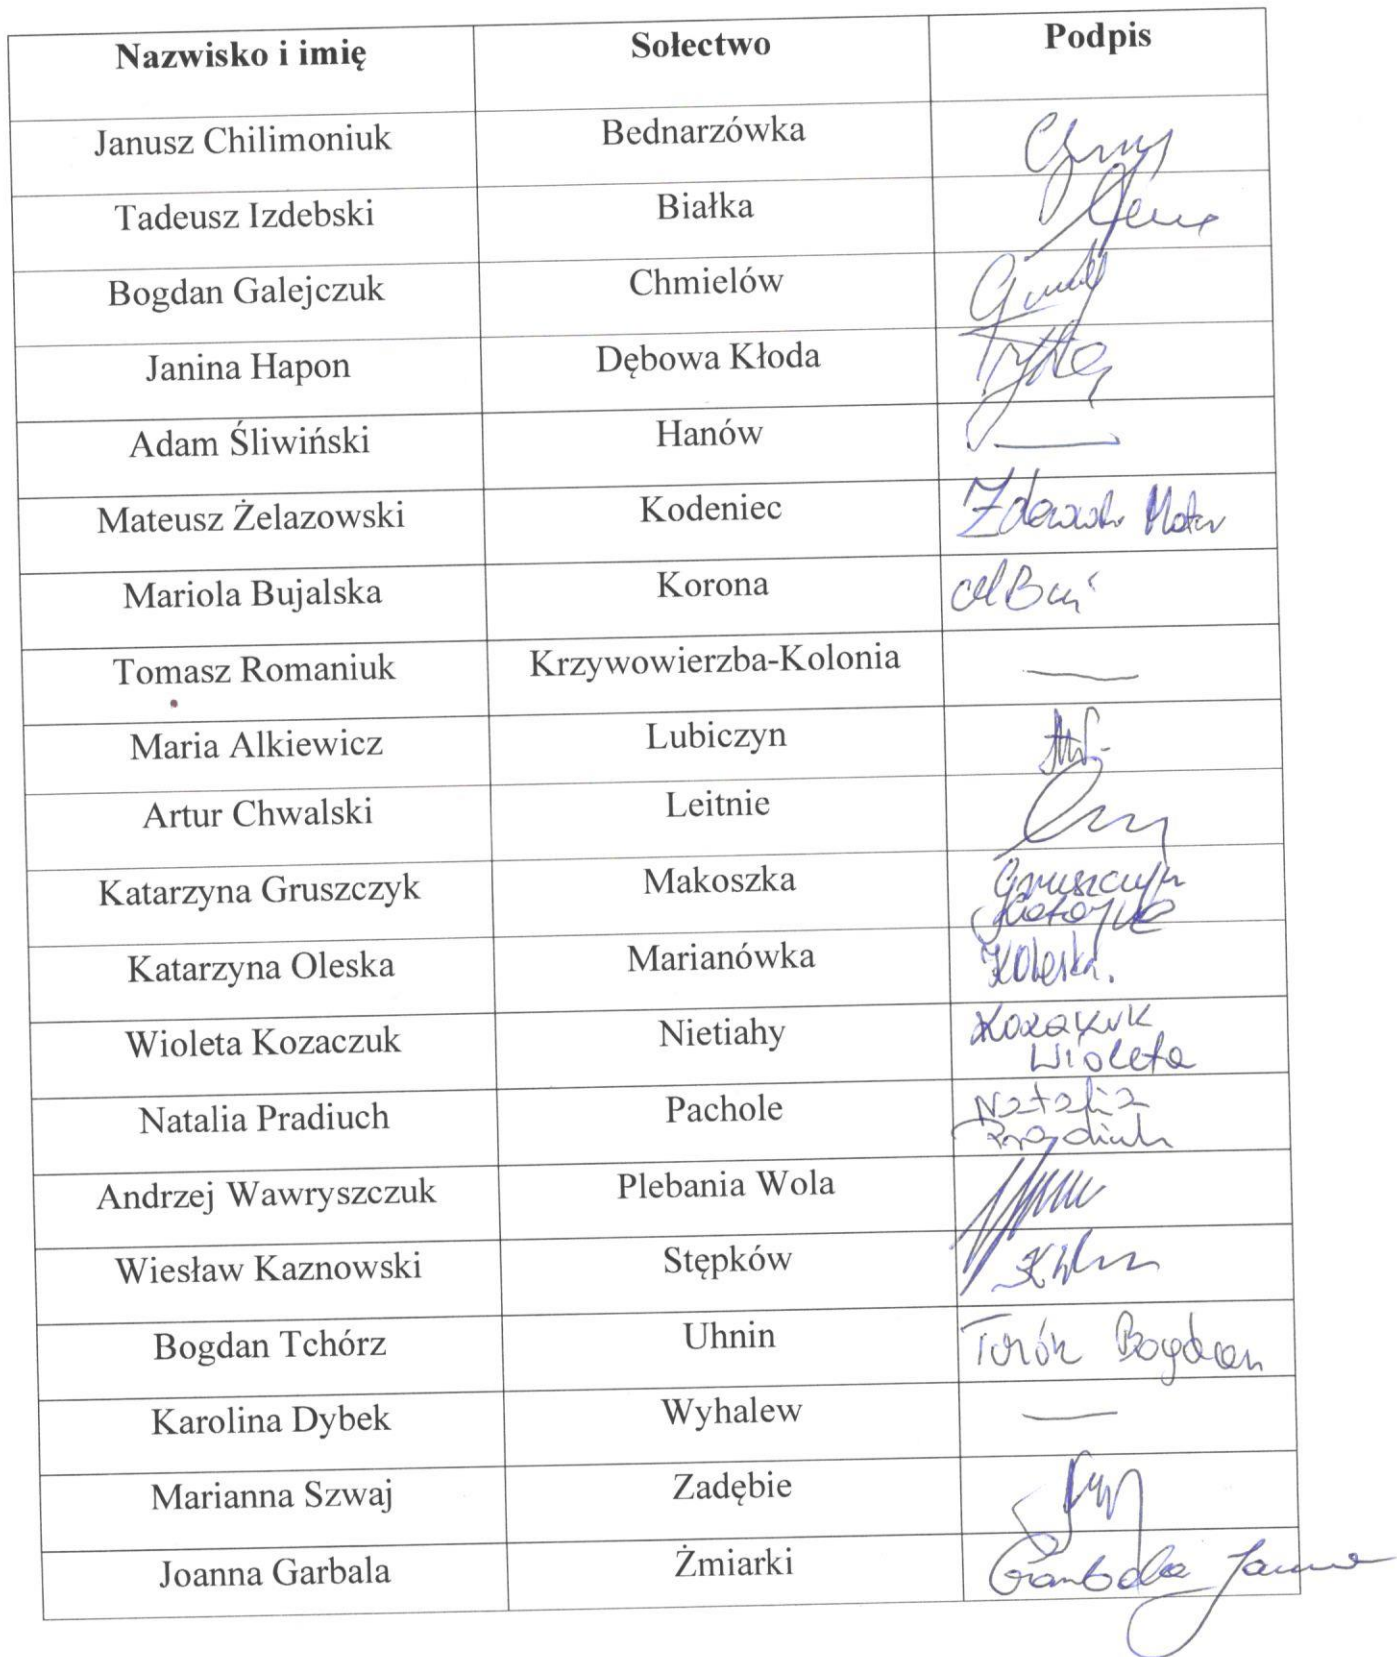 Nazwisko i imię Sołectwo Podpis
Janusz Chilimoniuk Bednarzówka
Tadeusz Izdebski Białka
Bogdan Galejczuk Chmielów
Janina Hapon Dębowa Kłoda
Adam Śliwiński Hanów —
Mateusz Żelazowski Kodeniec
Mariola Bujalska Korona
Tomasz Romaniuk Krzywowierzba-Kolonia —
Maria Alkiewicz Lubiczyn
Artur Chwalski Leitnie
Katarzyna Gruszczyk Makoszka
Katarzyna Oleska Marianówka KOleska.
Wioleta Kozaczuk Nietiahy Kozaczuk
Wioleta
Natalia Pradiuch Pachole Natalia
Pradiuch
Andrzej Wawryszczuk Plebania Wola
Wiesław Kaznowski Stępków
Bogdan Tchórz Uhnin Bogdan
Karolina Dybek Wyhalew —
Marianna Szwaj Zadębie
Joanna Garbala Żmiarki Garbala